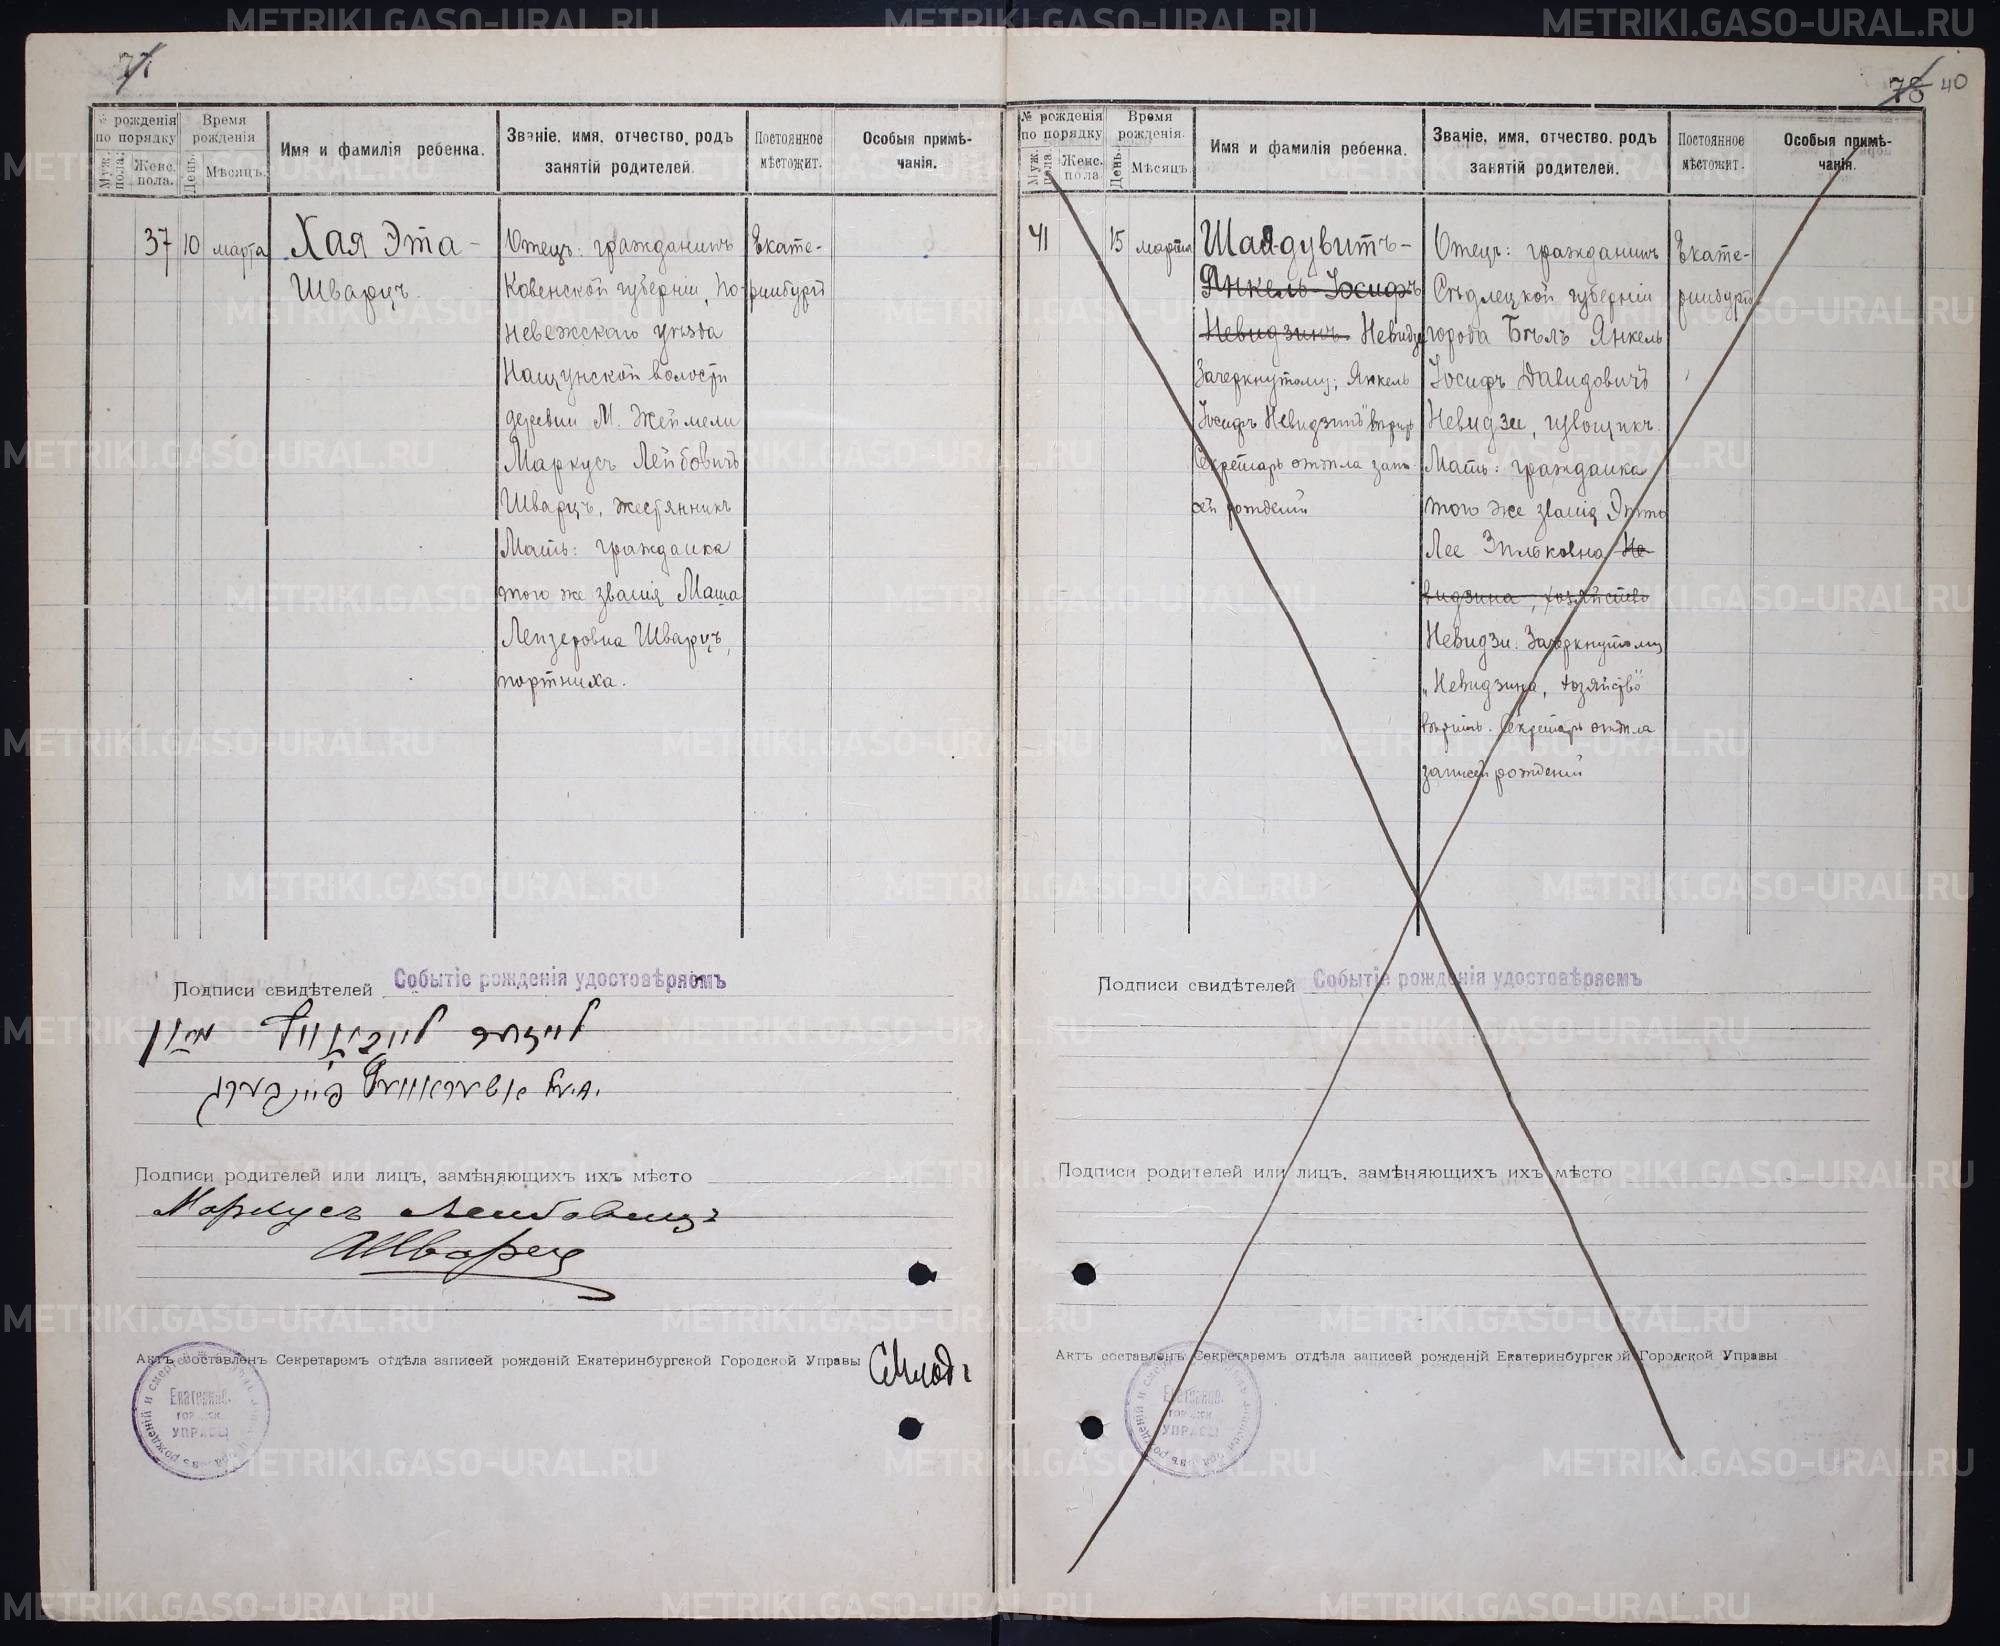 77
№ рожденія по порядку
Муж. пола.
Женс. пола.
Время рожденія
День.
Мѣсяцъ.
Имя и фамилія ребенка.
Званіе, имя, отчество, родъ занятій родителей.
Постоянное мѣстожит.
Особыя примѣчанія.
37
10
марта
Хая Эта -
Шварцъ.
Отецъ: гражданинъ
Ковенской губерніи, По-
невежскаго уѣзда
волости
деревни М. Жеймели
Маркусъ Лейбовичъ
Шварцъ, жестянникъ
Мать: гражданка
того же званія Маша
Лейзеровна Шварцъ,
портниха.
Екате-
ринбургъ
Подписи свидѣтелей
Событіе рожденія удостовѣряемъ
Подписи родителей или лицъ, замѣняющихъ ихъ мѣсто
Маркусъ Лейбовичъ
Шварцъ
Актъ составленъ Секретаремъ отдѣла записей рожденій Екатеринбургской Городской Управы
Екатеринб.
УПРАВЫ
78 40
№ рожденія по порядку
Муж. пола
Женс. пола
Время рожденія.
День.
Мѣсяцъ.
Имя и фамилія ребенка.
Званіе, имя, отчество, родъ занятій родителей.
Постоянное мѣстожит.
Особыя примѣчанія.
41
15
марта
Шаядувитъ-
Янкель-Іосифъ
Невидзинъ Невидзе
Зачеркнутому: Янкель
Іосифъ Невидзинъ" вѣрить
Секретарь отдѣла запи-
сей рожденій
Отецъ: гражданинъ
Сѣдлецкой губерніи
города Бѣлъ Янкель
Іосифъ Давидовичъ
Невидзе, извощикъ.
Мать: гражданка
того же званія Этта
Лее Зильковна Не-
видзина, хозяйство
Невидзи. Зачеркнутому
„Невидзина, хозяйство"
вѣрить. Секретарь отдѣла
записей рожденій
Екате-
ринбургъ
Подписи свидѣтелей
Событіе рожденія удостовѣряемъ
Подписи родителей или лицъ, замѣняющихъ ихъ мѣсто
Актъ составленъ Секретаремъ отдѣла записей рожденій Екатеринбургской Городской Управы
Екатеринб.
УПРАВЫ
METRIKI.GASO-URAL.RU